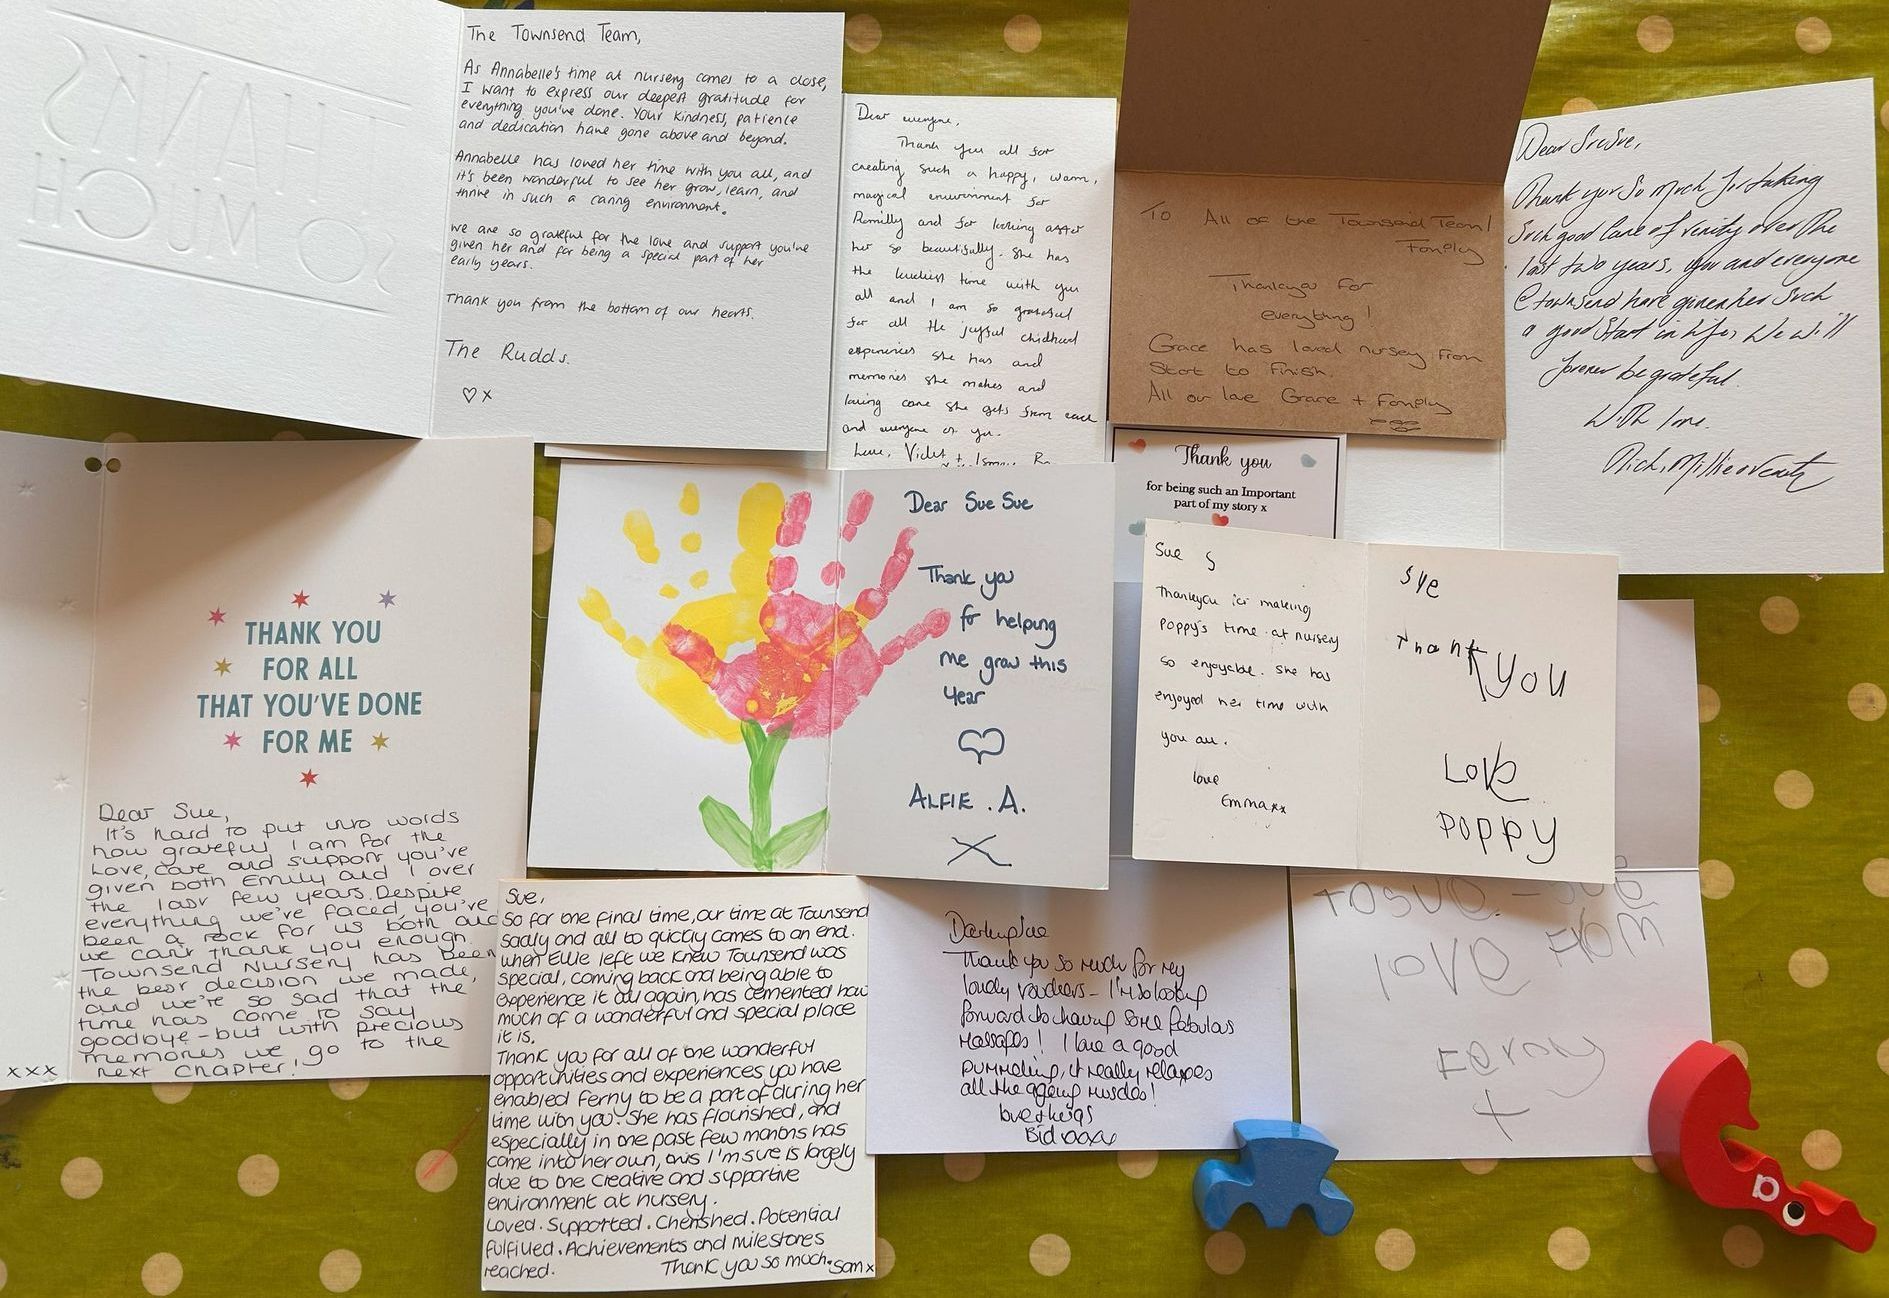 THANKS
SO MUCH
The Townsend Team,
As Annabelle's time at nursery comes to a close,
I want to express our deepest gratitude for
everything you've done. Your kindness, patience
and dedication have gone above and beyond.
Annabelle has loved her time with you all, and
it's been wonderful to see her grow, learn, and
thrive in such a caring environment.
we are so grateful for the love and support you've
given her and for being a special part of her
early years.
Thank you from the bottom of our hearts.
The Rudds.
♡ x
Dear everyone,
Thank you all for
creating such a happy, warm,
magical environment for
Romilly and for looking after
her so beautifully. She has
the luckiest time with you
all and I am so grateful
for all the joyful childhood
experiences she has and
memories she makes and
loving care she gets from each
and everyone of you.
Love, Violet +
To All of the Townsend Team/
Family
Thankyou for
everything!
Grace has loved nursery from
start to finish.
All our love Grace + Family
Dear SueSue,
Thank you so much for taking
such good care of Verity over the
last two years, you and everyone
@townsend have given her such
a good start in life, we will
forever be grateful.
With love.
Rich, Millie &
Thank you
for being such an Important
part of my story x
THANK YOU
FOR ALL
THAT YOU'VE DONE
FOR ME
Dear Sue,
It's hard to put into words
how grateful I am for the
Love, care and support you've
given both Emily and I over
the last few years. Despite
everything we've faced, you've
been a rock for us both and
we can't thank you enough.
Townsend Nursery has been
the best decision we made,
and we're so sad that the
time has come to say
goodbye - but with precious
memories we go to the
next chapter!
xxx
Dear Sue Sue
Thank you
for helping
me grow this
year
♡
ALFIE . A.
X
Sue S
Thankyou for making
Poppy's time at nursery
so enjoyable. She has
enjoyed her time with
you all.
love
Emma xx
Sue
Thank you
Love
Poppy
Sue,
So for one final time, our time at Townsend
sadly and all to quickly comes to an end.
when Ellie left we knew Townsend was
special, coming back and being able to
experience it all again, has cemented how
much of a wonderful and special place
it is.
Thank you for all of the wonderful
opportunities and experiences you have
enabled Ferny to be a part of during her
time with you. She has flourished, and
especially in the past few months has
come into her own, this I'm sure is largely
due to the creative and supportive
environment at nursery.
Loved. Supported. Cherished. Potential
fulfilled. Achievements and milestones
reached. Thank you so much. Sam x
Darling Sue
Thank you so much for my
lovely vouchers - I'm so looking
forward to having some fabulous
massages! I love a good
pummeling, it really relaxes
all the ageing muscles!
love & hugs
Bid xxxx
TO SUE - SUE
LOVE FROM
Ferny
+